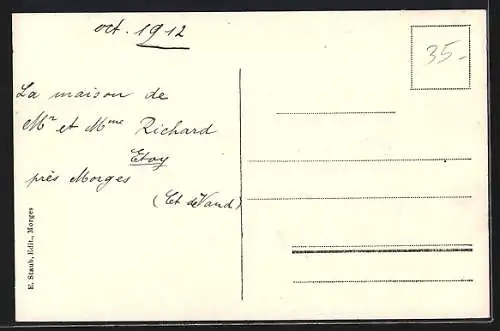 oct. 1912
35-
La maison de
Mr et Mme Richard
Etoy
près Morges
(Ct de Vaud)
E. Staub, Edit., Morges